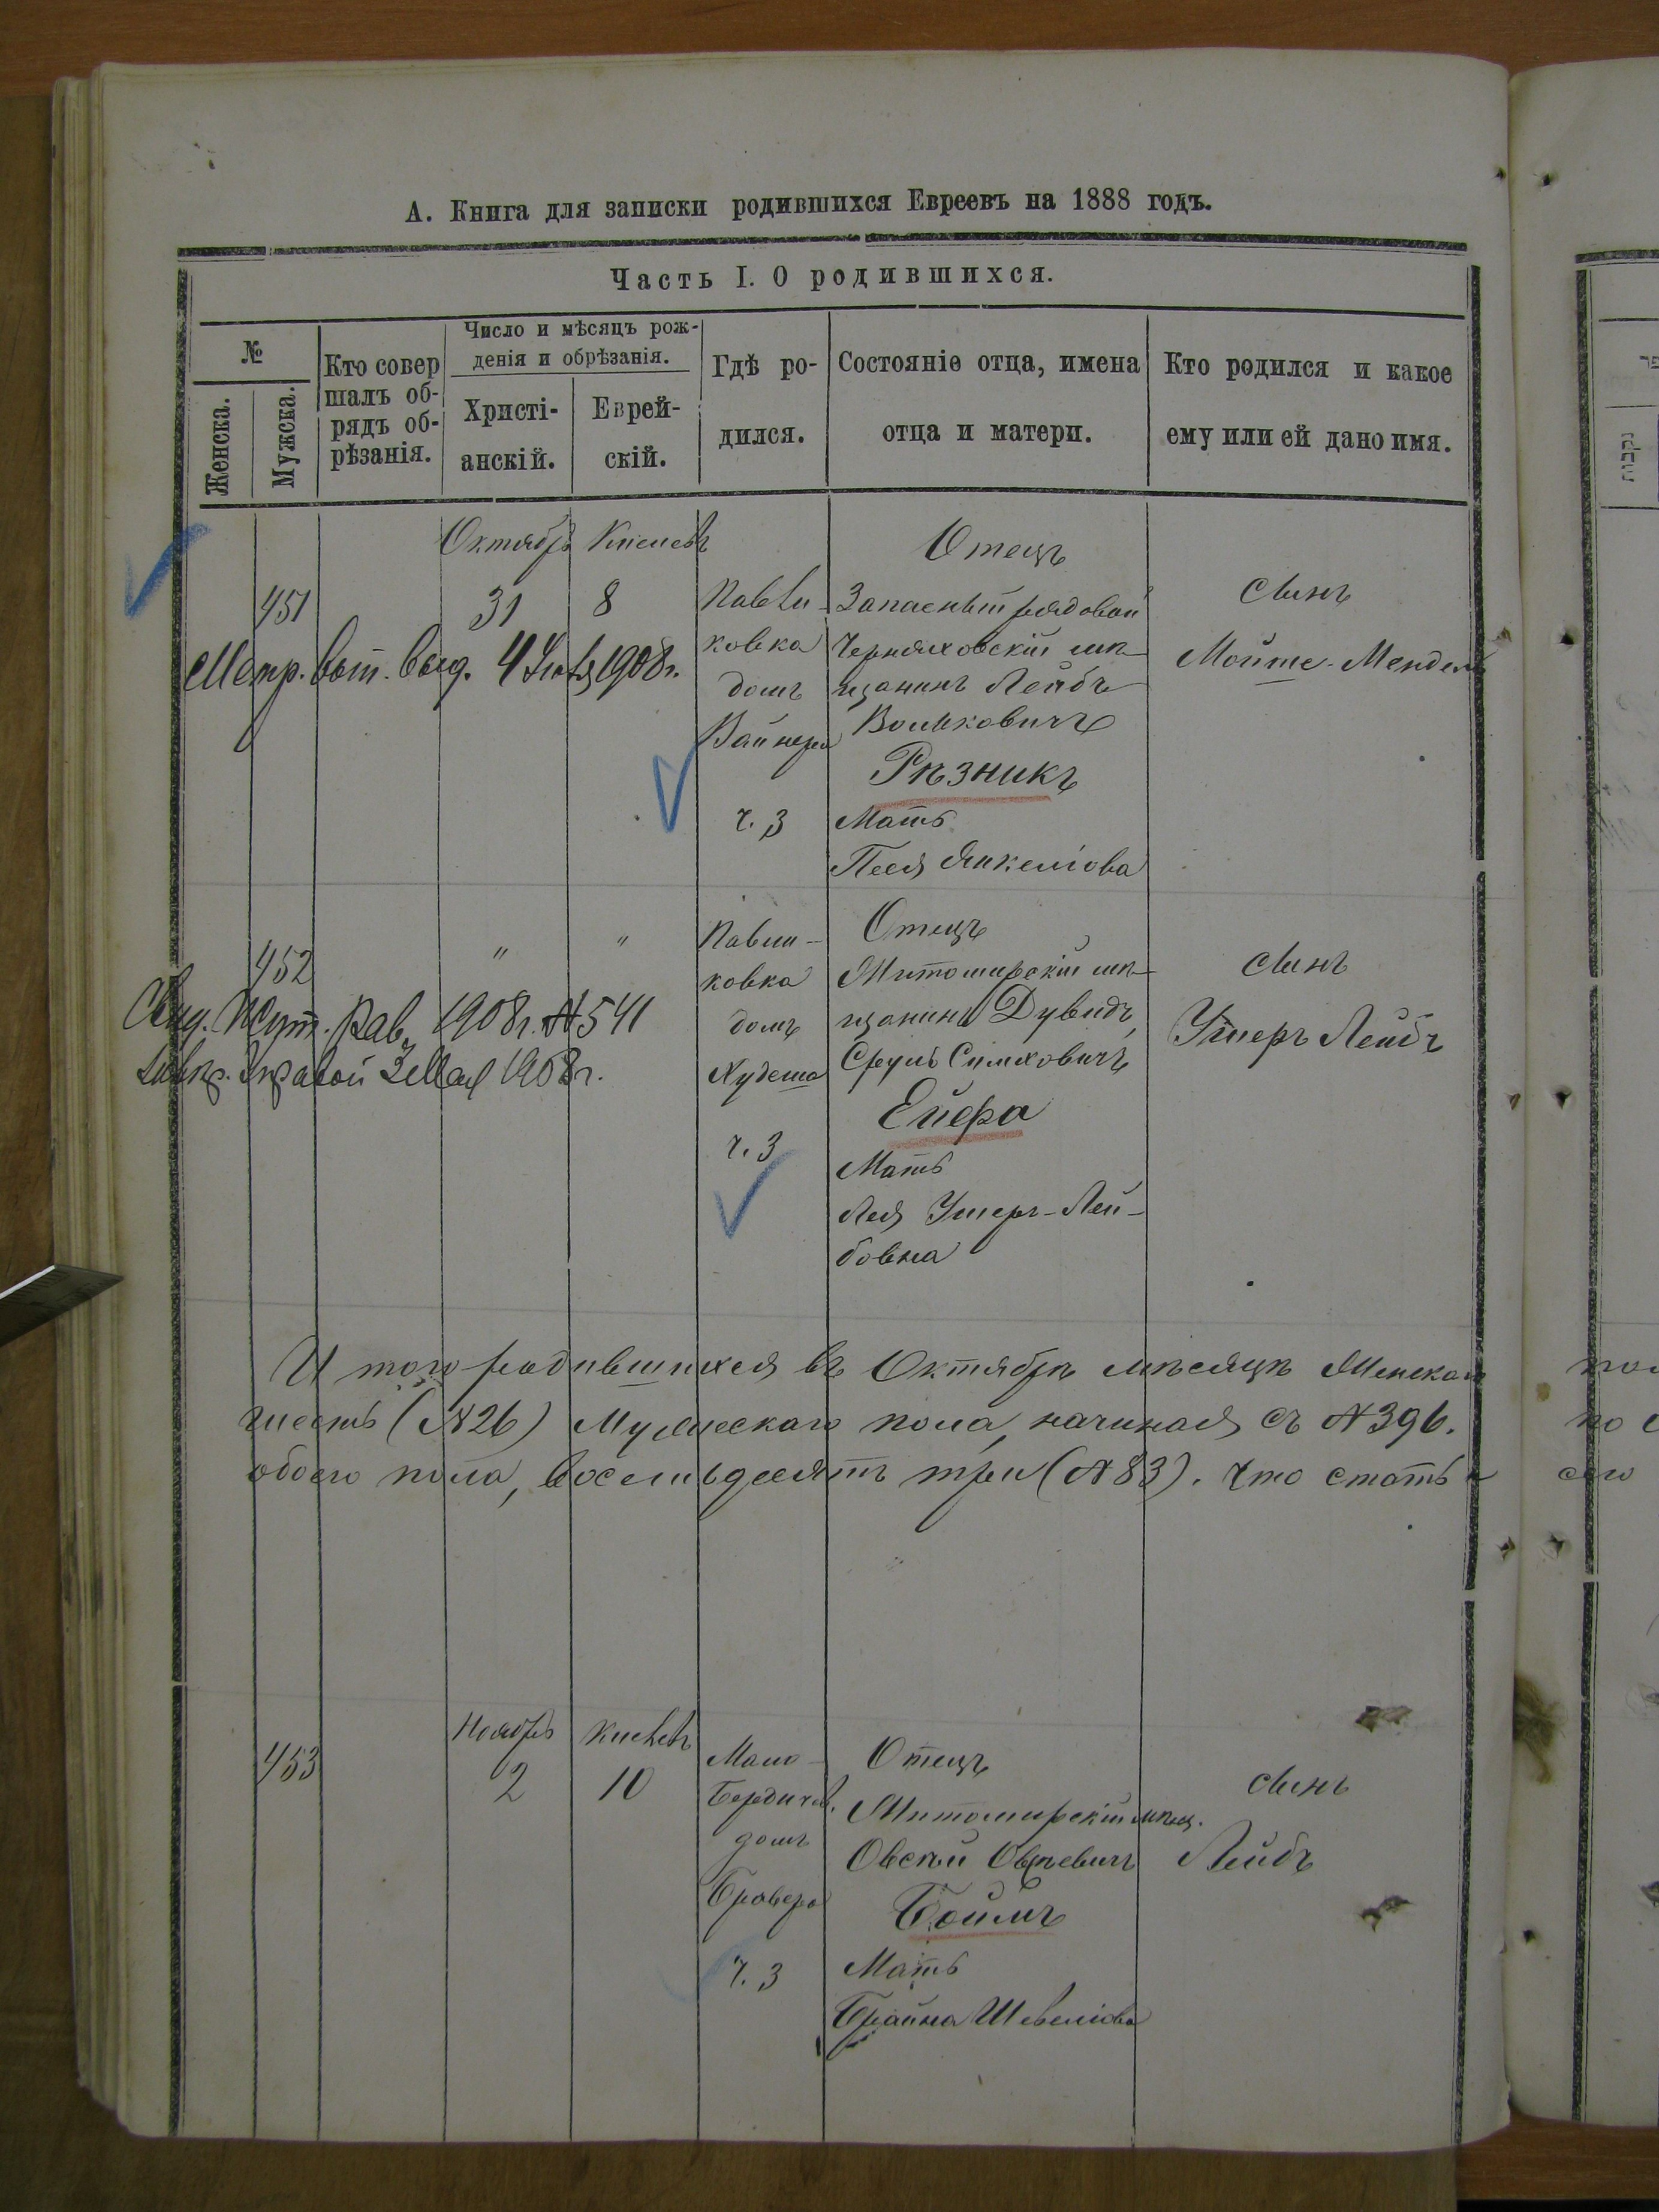 А. Книга для записки родившихся Евреевъ на 1888 годъ.
Часть I. О родившихся.
№
Женска.
Мужска.
Кто совер
шалъ об-
рядъ об-
рѣзанія.
Число и мѣсяцъ рож-
денія и обрѣзанія.
Христі-
анскій.
Еврей-
скій.
Гдѣ ро-
дился.
Состояніе отца, имена
отца и матери.
Кто родился и какое
ему или ей дано имя.
Октябрь Кислевъ
451
31
8
Павли-
ковка
домъ
Вайнера
ч. 3
Отецъ
Запасный рядовой
Черняховскій мѣ-
щанинъ Лейбъ
Вольковичъ
Рѣзникъ
Мать
Песя Янкеліова
Сынъ
Мойше-Мендель
Метр. выд. 1908г.
452
"
"
Павли-
ковка
домъ
Худеша
ч. 3
Отецъ
Житомирскій мѣ-
щанинъ Дувидъ
Сруль Симховичъ
Ейера
Мать
Лея Ушеръ-Лей-
бовна
Сынъ
Ушеръ Лейбъ
Свид. Жит. Рав. 1908г. № 541
Мая 1908г.
Итого родившихся въ Октябрѣ мѣсяцѣ Женска
шесть (№26) Мужескаго пола, начиная съ №396.
обоего пола, восемьдесятъ три (№83). Что статьи
Ноябрь Кислевъ
453
2
10
Мало-
Бердичев.
домъ
Бравера
ч. 3
Отецъ
Житомирскій мѣщ.
Овсѣй Овсѣевичъ
Боймъ
Мать
Брайна Шевеліова
Сынъ
Лейбъ